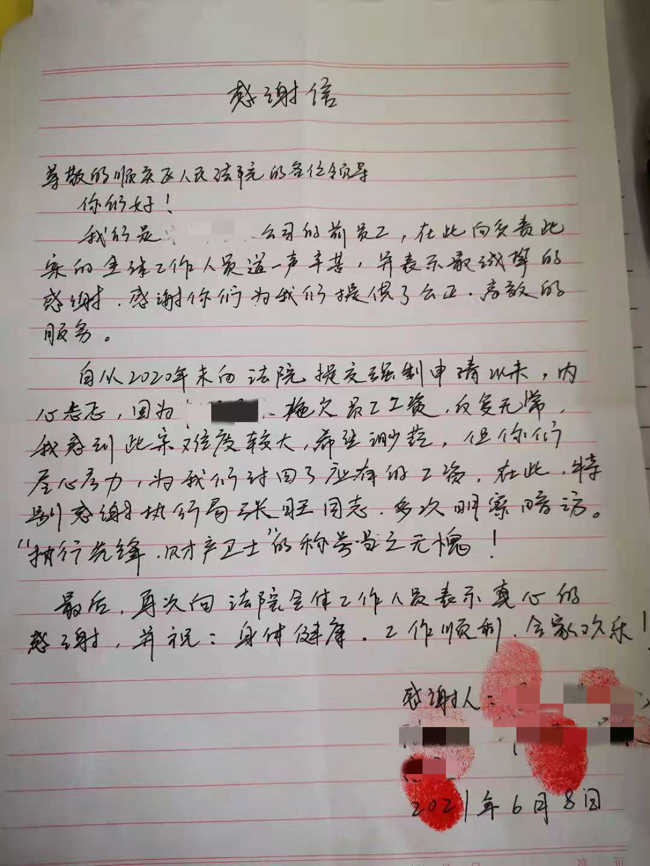 感谢信
尊敬的顺庆区人民法院的各位领导
你们好！
我们是 公司的前员工，在此向负责此
案的全体工作人员道一声辛苦，并表示最诚挚的
感谢．感谢你们为我们提供了公正．高效的
服务。
自从2020年末向法院提交强制申请以来，内
心忐忑，因为 拖欠员工工资，反复无常，
我感到此案难度较大，希望渺茫，但你们
尽心尽力，为我们讨回了应有的工资．在此，特
别感谢执行局张旺同志．多次明察暗访。
“执行先锋．财产卫士”的称号当之无愧！
最后，再次向法院全体工作人员表示真心的
感谢，并祝：身体健康．工作顺利．合家欢乐！
感谢人：
2021年6月8日